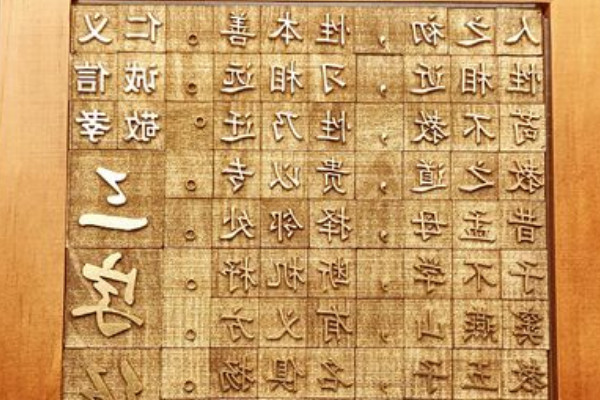 人之初，性本善。
性相近，习相远。
苟不教，性乃迁。
教之道，贵以专。
昔孟母，择邻处。
子不学，断机杼。
窦燕山，有义方。
教五子，名俱扬。
仁义
诚信
敬孝
三字经